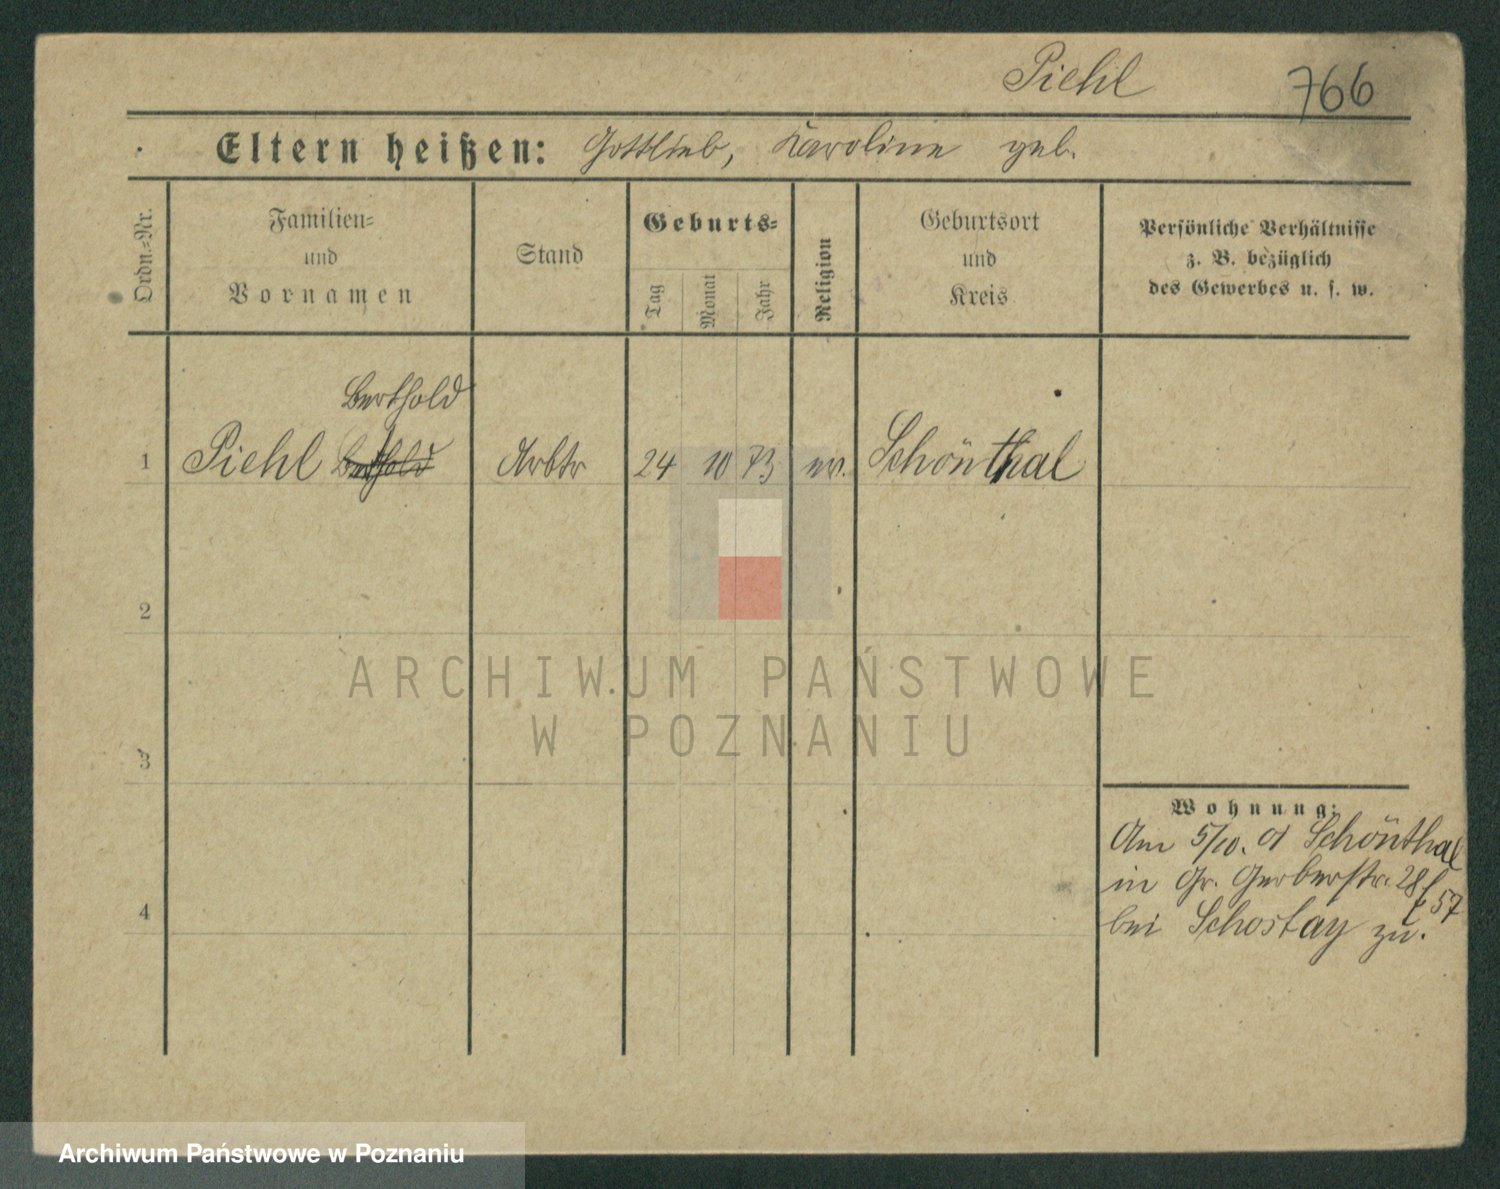 Piehl 766
Eltern heißen: Gottlieb, Karoline geb.
Ordn.=Nr.
Familien=
und
Vornamen
Stand
Geburts=
Tag
Monat
Jahr
Religion
Geburtsort
und
Kreis
Persönliche Verhältnisse
z. B. bezüglich
des Gewerbes u. s. w.
Berthold
1 Piehl Berthold Arbtr 24 10 73 ev. Schönthal
2
3
4
Wohnung:
Am 5/10. 01 Schönthal
in Gr. Gerberstr. 28
57
bei Schostay zu.
ARCHIWUM PAŃSTWOWE
W POZNANIU
Archiwum Państwowe w Poznaniu